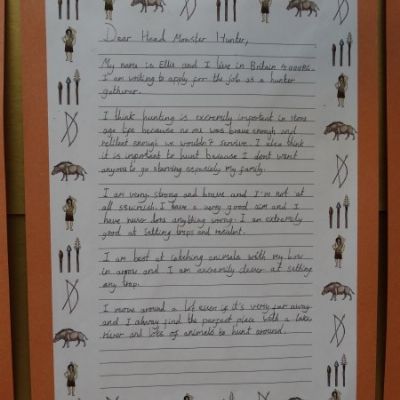 Dear Head Monster Hunter,
My name is Ella and I live in Britain
I am writing to apply for the job as a hunter
gatherer.
I think hunting is extremely important in stone
age life because no one was brave enough and
enough we wouldn't survive. I also think
it is inportant to hunt because I dont want
anyone to go starving especialy my family.
I am very strong and brave and I'm not at
all squirmish. I have a very good aim and I
have never done anything wrong. I am extremely
good at setting traps and
I am best at catching animals with my bow
in arrow and I am extremely clever at setting
any trap.
I move around a lot even if it's very far away
and I always find the perfect place with a lake,
river and lots of animals to hunt around.